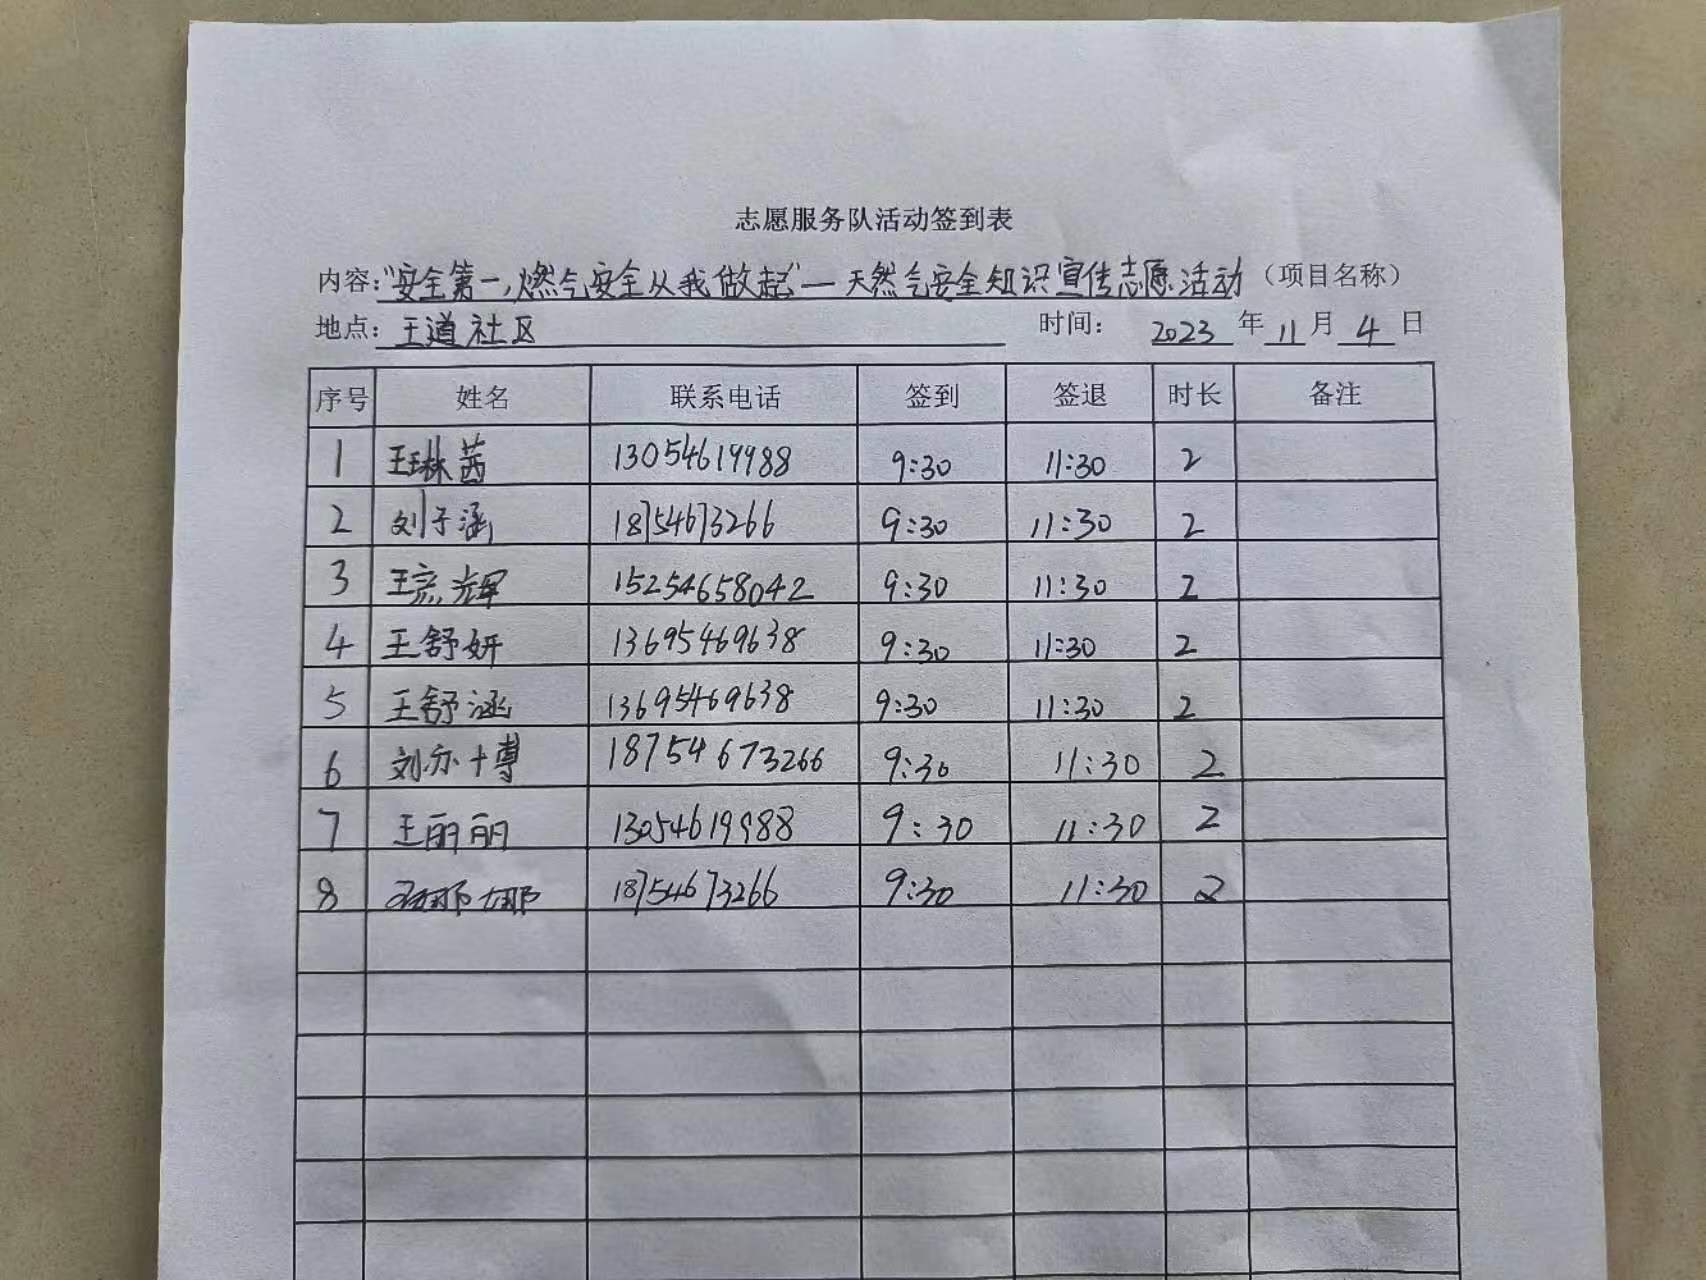 志愿服务队活动签到表
内容:"安全第一,燃气安全从我做起"—天然气安全知识宣传志愿活动(项目名称)
地点:王道社区 时间: 2023 年 11 月 4 日
序号 姓名 联系电话 签到 签退 时长 备注
1 王琳茜 13054619988 9:30 11:30 2
2 刘子涵 18754673266 9:30 11:30 2
3 王 辉 15254658042 9:30 11:30 2
4 王舒妍 13695469638 9:30 11:30 2
5 王舒涵 13695469638 9:30 11:30 2
6 刘亦博 18754673266 9:30 11:30 2
7 王丽丽 13054619988 9:30 11:30 2
8 娜娜 18754673266 9:30 11:30 2